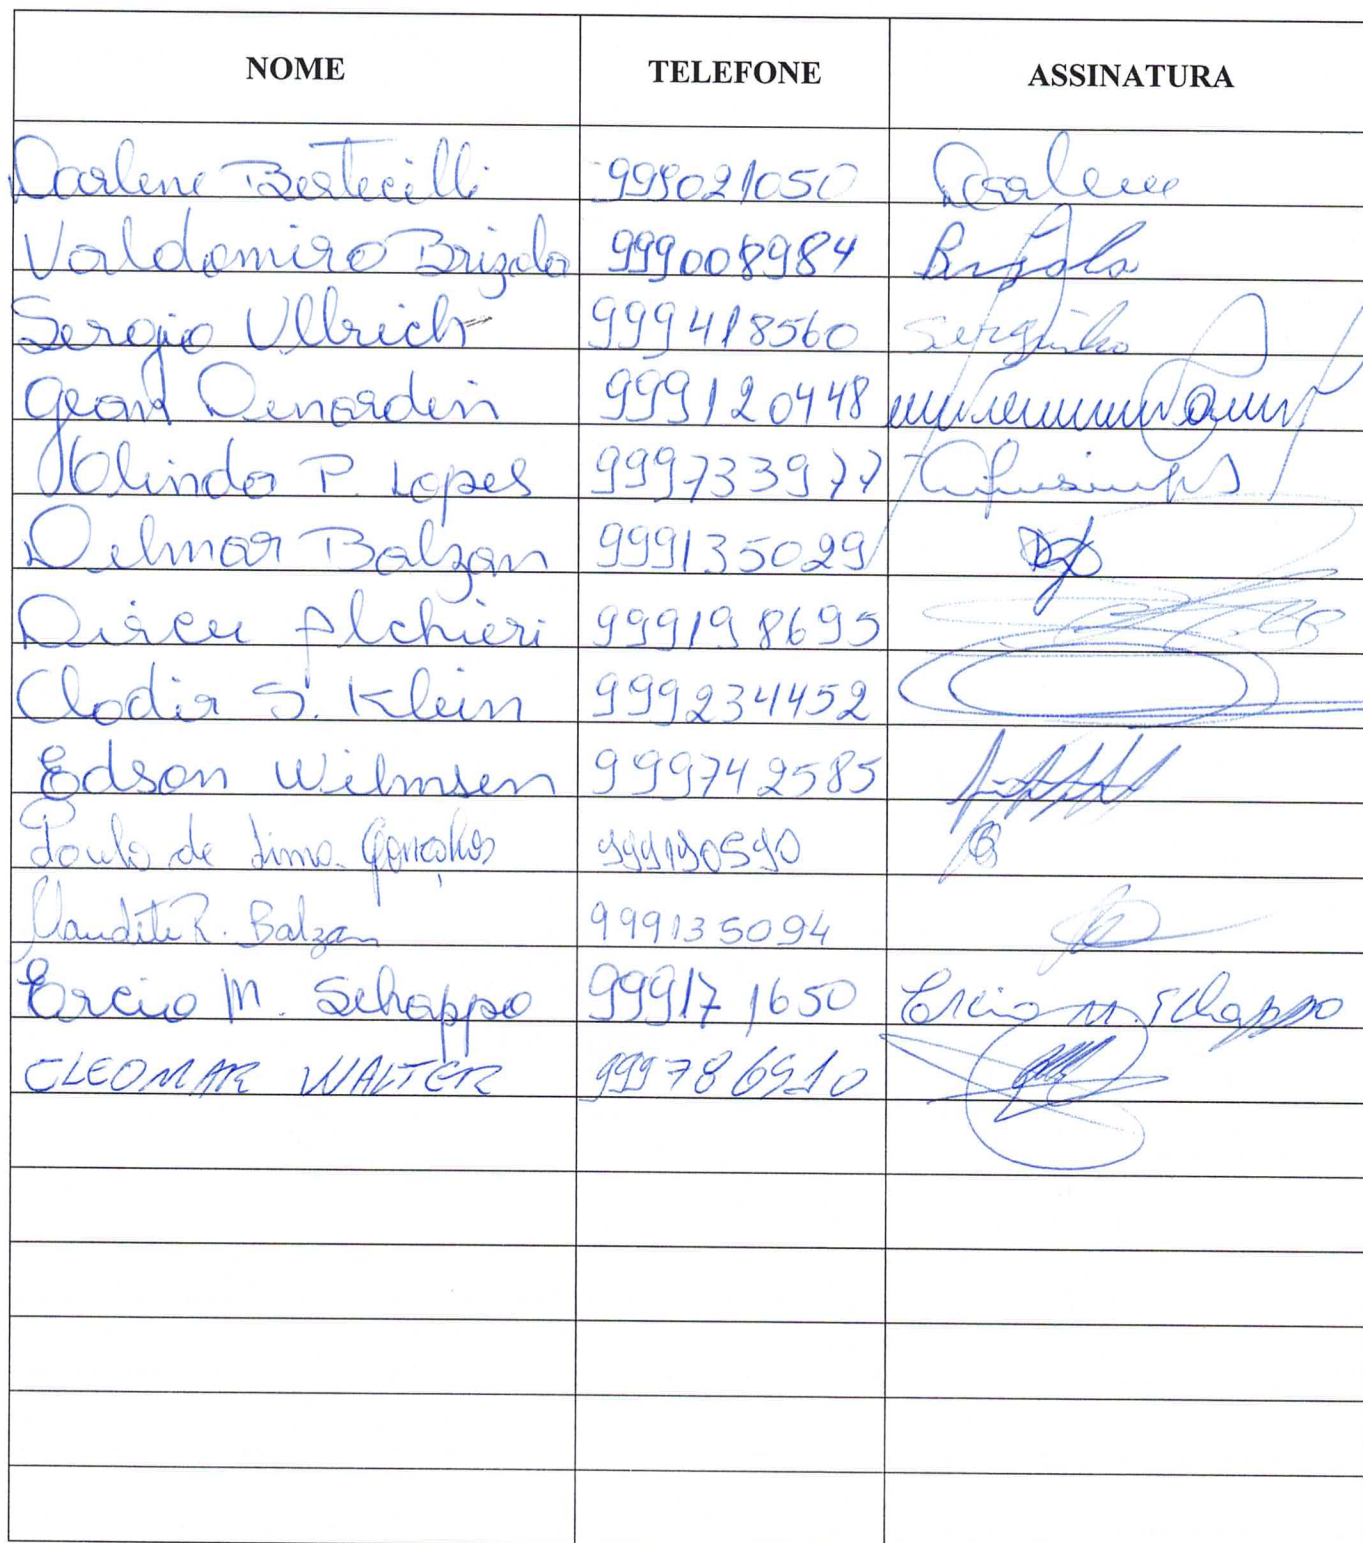 NOME TELEFONE ASSINATURA
Darlene Berticilli 999021050 Darlene
Valdomiro Brizola 999008984 Brizola
Sergio Ullrich 999418560 Serginho
Geani Denardin 999120448
Olindo P. Lopes 999733977
Delmar Balzan 999135029
Dirceu Alchieri 999198695
Clodir S. Klein 999234452
Edson Wilmsen 999742585
Paulo de Lima Gonçalves 999190590
Claudete R. Balzan 999135094
Ercio M. Schappo 999171650 Ercio M. Schappo
CLEOMAR WALTER 999786910